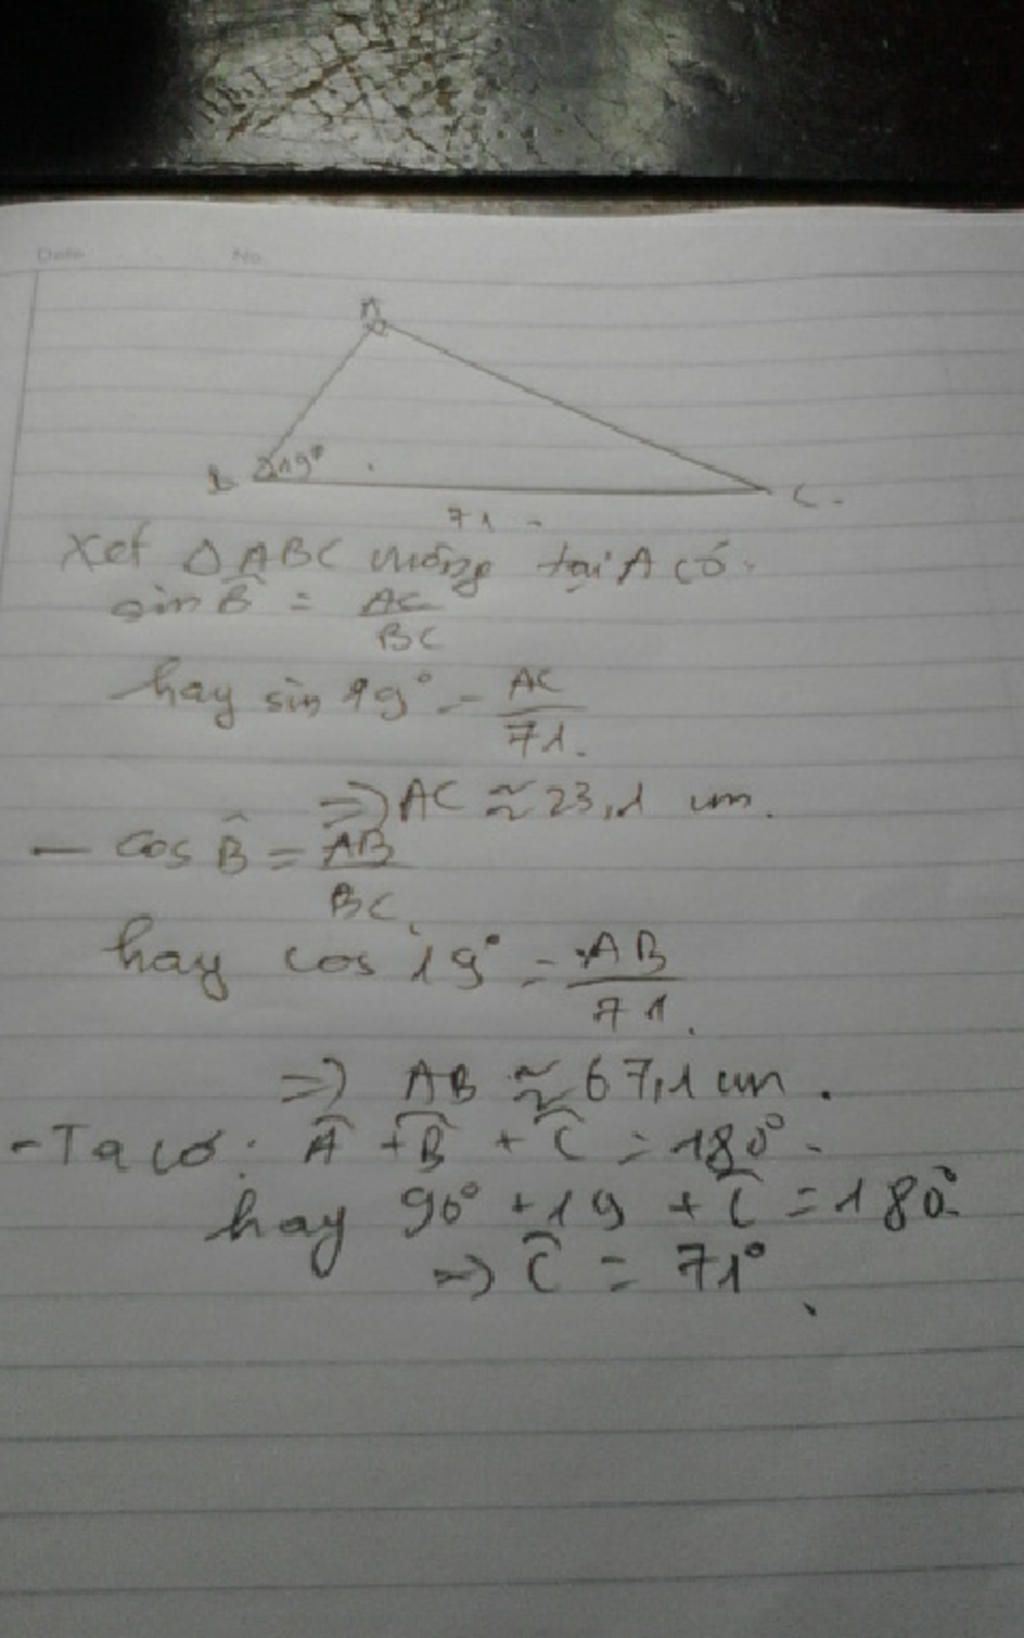 Date No.
A
B 19° C
71
Xét Δ ABC vuông tại A có
sin B̂ = AC/BC
hay sin 19° = AC/71
=> AC ≈ 23,1 cm.
- cos B̂ = AB/BC
hay cos 19° = AB/71.
=> AB ≈ 67,1 cm.
- Ta có: Â + B̂ + Ĉ = 180°
hay 90° + 19 + Ĉ = 180°
=> Ĉ = 71°